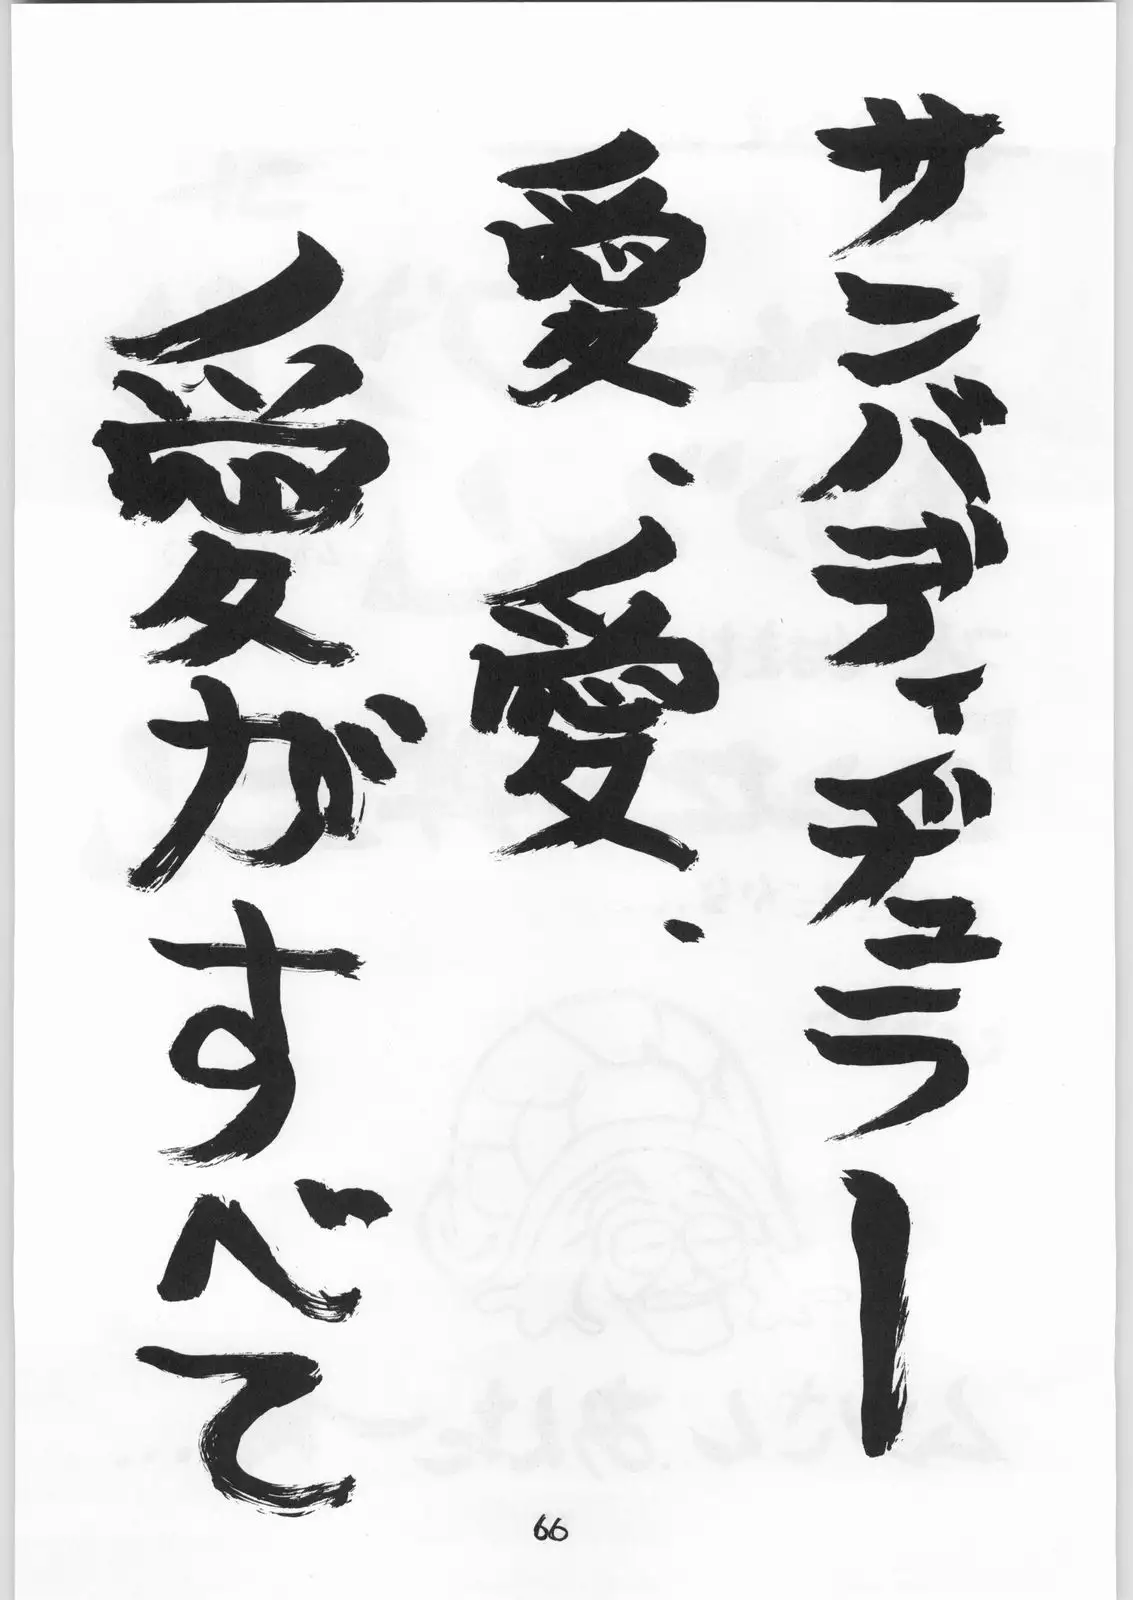 サンバディ・デュラー
愛、愛、
愛がすべて
66